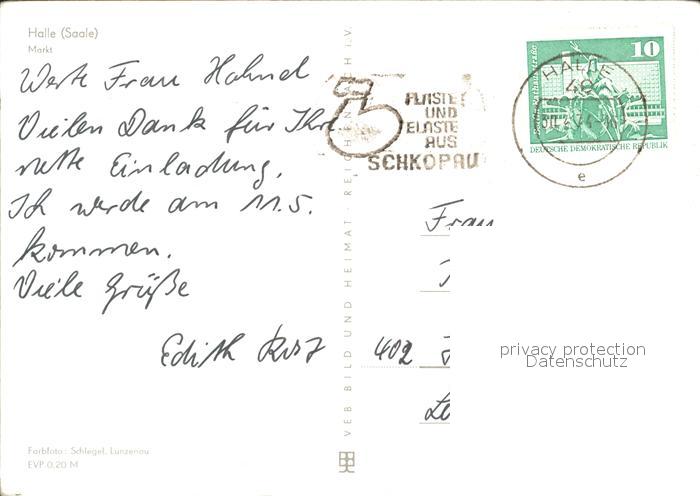 Halle (Saale)
Markt
Werte Frau Hahnd
Vielen Dank für Ihre
nette Einladung.
Ich werde am 11.5.
kommen.
Viele Grüße
Edith
Farbfoto: Schlegel, Lunzenau
EVP 0,20 M
VEB BILD UND HEIMAT REICHENBACH I.V.
PLASTE
UND
ELASTE
AUS
SCHKOPAU
HALLE
e
10
DEUTSCHE DEMOKRATISCHE REPUBLIK
Frau
402
privacy protection
Datenschutz